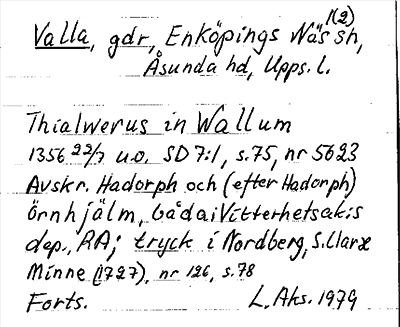 1(2)
Valla, gdr, Enköpings Näs sn,
Åsunda hd, Upps. l.
Thialwerus in Wallum
1356 22/7 u.o. SD 7:1, s.75, nr 5623
Avskr. Hadorph och (efter Hadorph)
örnhjälm, båda i Vitterhetsak:s
dep., RA; tryck i Nordberg, S. Claræ
Minne (1727), nr 126, s.78
Forts. L. Aks. 1979